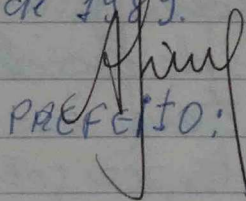 de 1989.
PREFEITO: